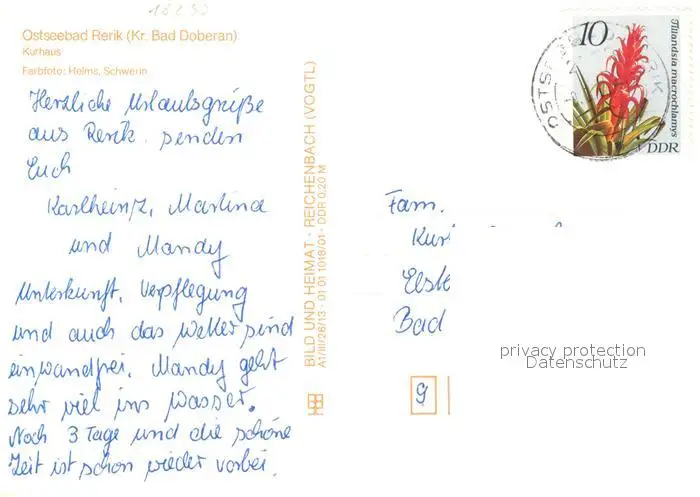 Ostseebad Rerik (Kr. Bad Doberan)
Kurhaus
Farbfoto: Helms, Schwerin
Herzliche Urlaubsgrüße
aus Rerik senden
Euch
Karlheinz, Martina
und Mandy
Unterkunft, Verpflegung
und auch das Wetter sind
einwandfrei. Mandy geht
sehr viel ins Wasser.
Noch 3 Tage und die schöne
Zeit ist schon wieder vorbei.
BILD UND HEIMAT · REICHENBACH (VOGTL)
A1/III/26/13 · 01 01 1018/01 · DDR 0,20 M
10
Tillandsia macrochlamys
DDR
Fam.
Bad
9
privacy protection
Datenschutz